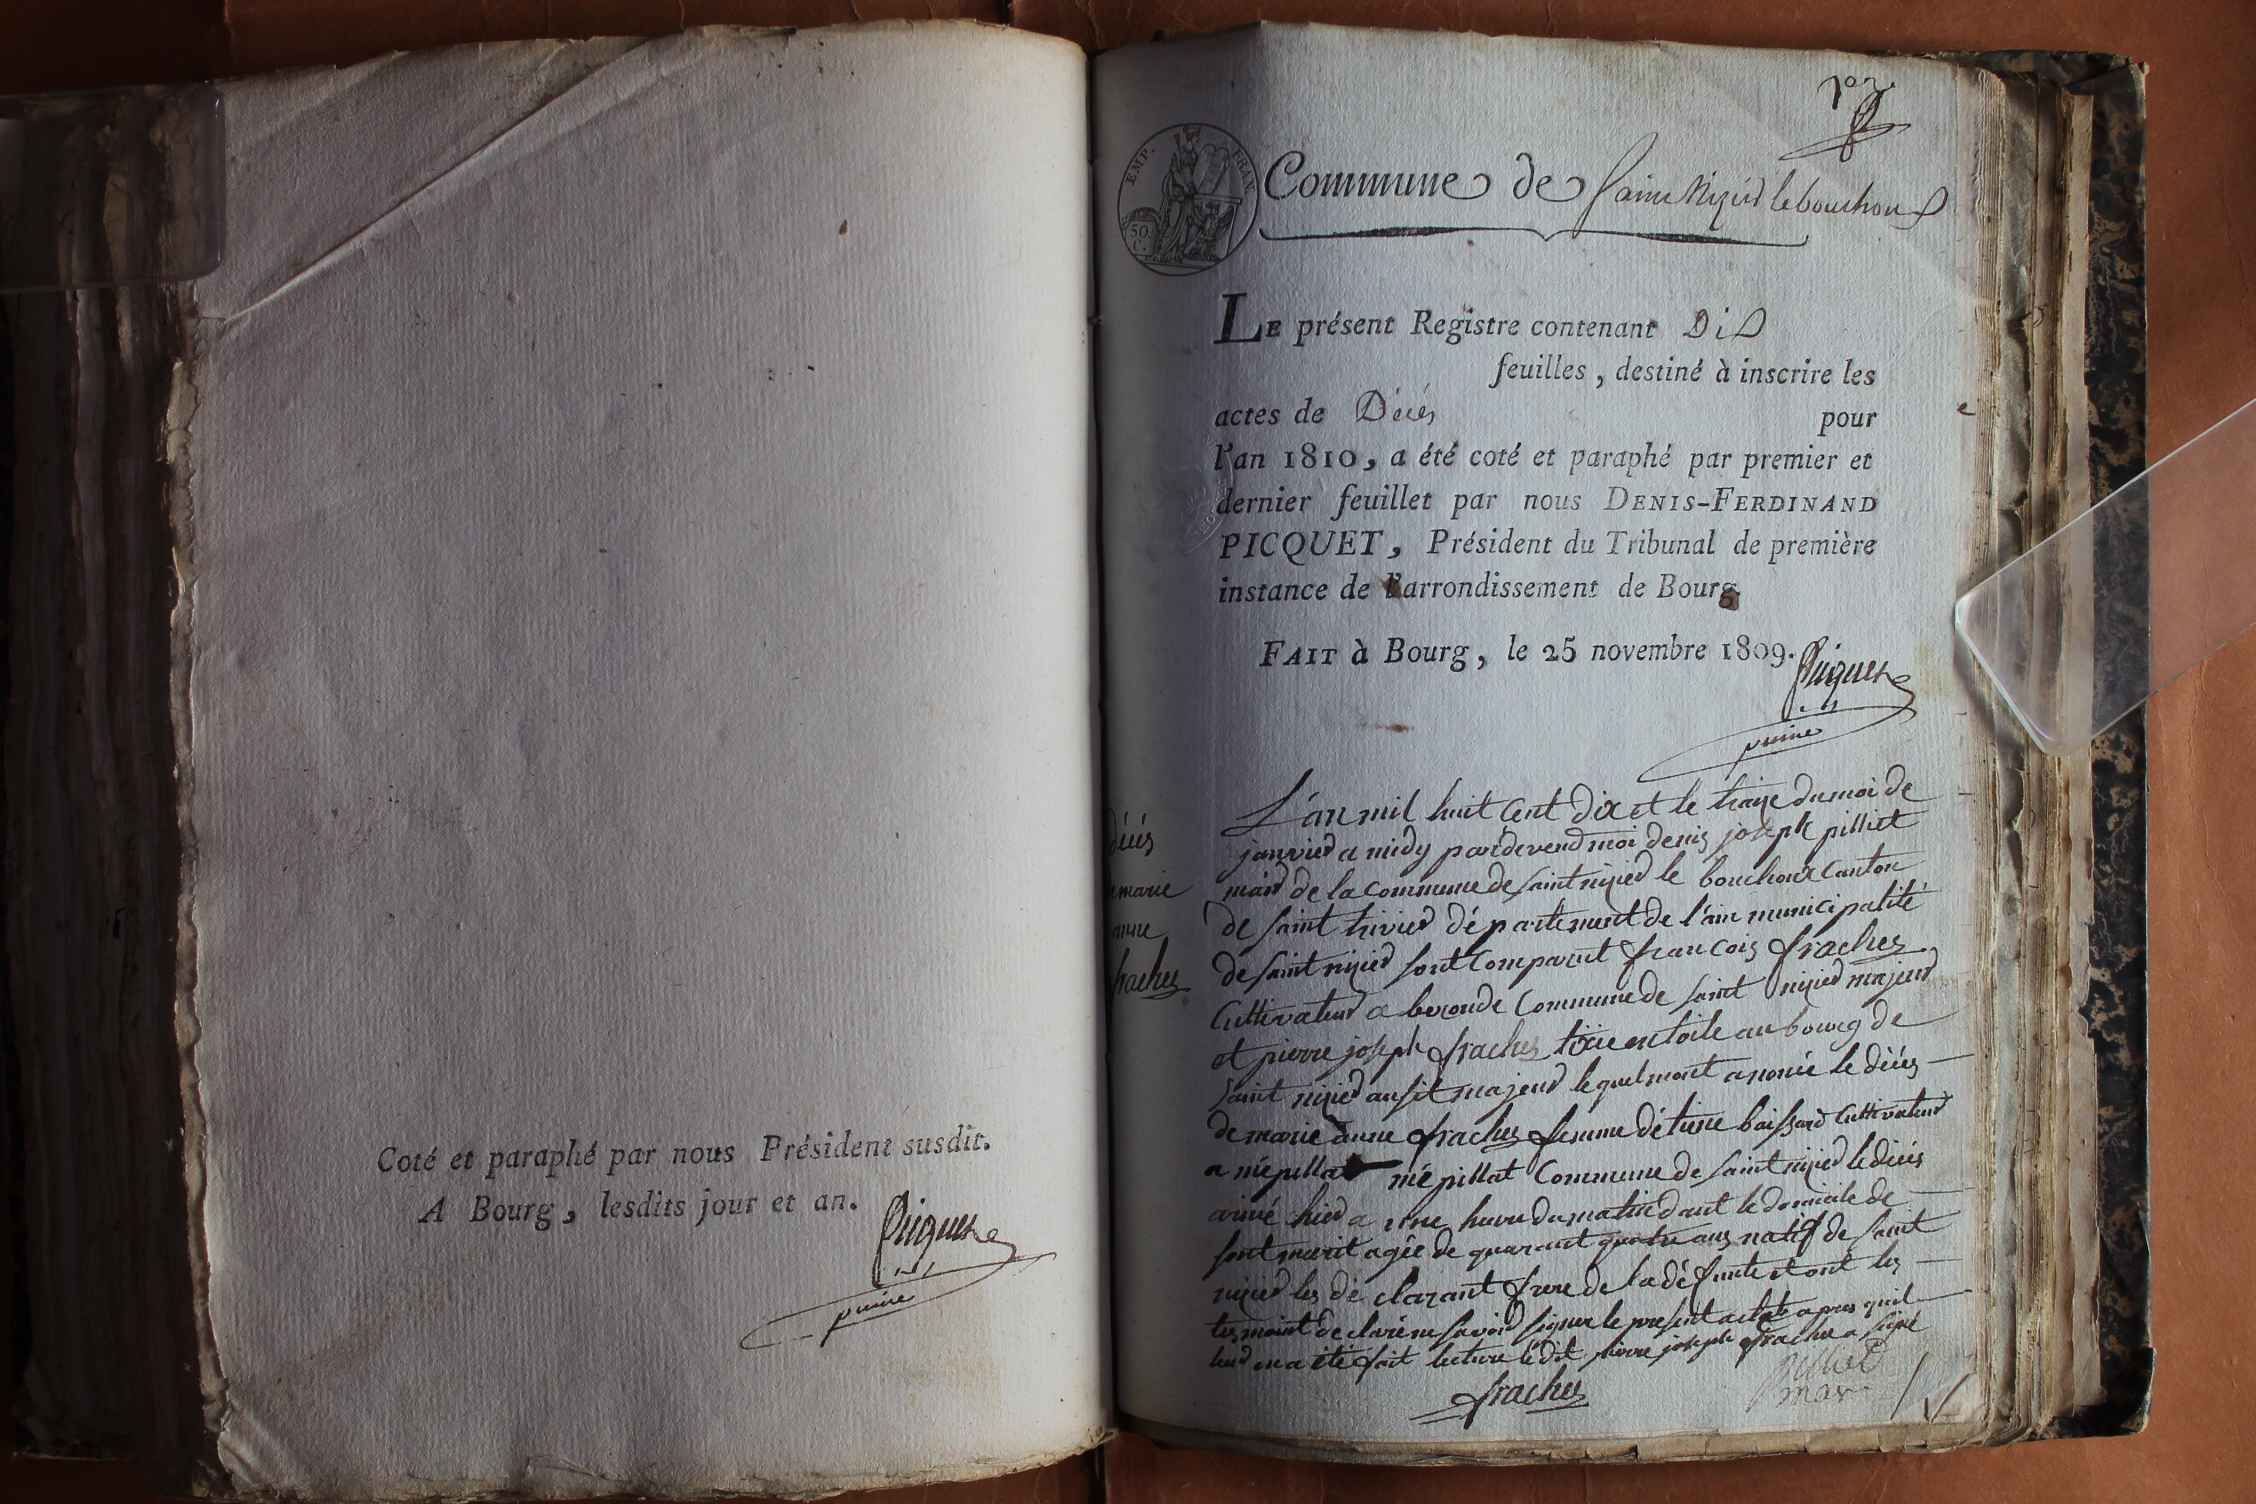 Coté et paraphé par nous Président susdit.
A Bourg, lesdits jour et an.
Picquet
EMP. FRAN.
50.
C.
Commune de Saint Nizier le bouchoux
LE présent Registre contenant Dix
feuilles, destiné à inscrire les
actes de Décès pour
l'an 1810, a été coté et paraphé par premier et
dernier feuillet par nous DENIS-FERDINAND
PICQUET, Président du Tribunal de première
instance de l'arrondissement de Bourg.
FAIT à Bourg, le 25 novembre 1809.
Picquet
décès
marie
anne
fraches
L'an mil huit cent dix et le traize du moi de
janvier a midy pardevend moi denis joseph pilliet
mair de la commune de saint nizier le bouchoux canton
de saint trivier département de l'ain municipalité
de saint nizier sont comparut francois fraches
cultivateur a beronde commune de saint nizier majeur
et pierre joseph fraches en toile au bourg de
saint nizier ausit majeur lequel mont anoncé le décés
de marie anne fraches femme détiene baissard cultivateur
a mépillat mépillat commune de saint nizier le décés
arivé hier a une heure du matin dant le domicile de
sont marit agée de quarant quatre ans natif de saint
nizier les déclarant frere de la défunte et ont les
temoint declaré ne savoir signer le present acte apres quil
leur en a été fait lecture ledit pierre joseph fraches a signé
fraches
pilliet
mair